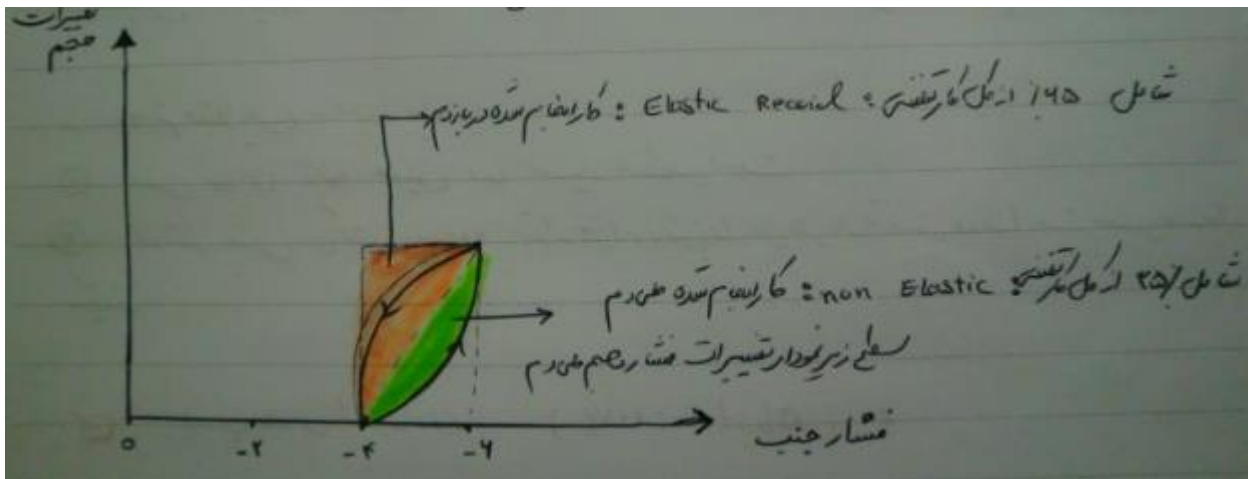 تغییرات
حجم
شامل ۶۵٪ از کل کار تنفسی : Elastic Recoial : کار انجام شده در بازدم
شامل ۳۵٪ از کل کار تنفسی : non Elastic : کار انجام شده طی دم
سطح زیر نمودار تغییرات فشار و حجم طی دم
۰ -۲ -۴ -۶
فشار جنب